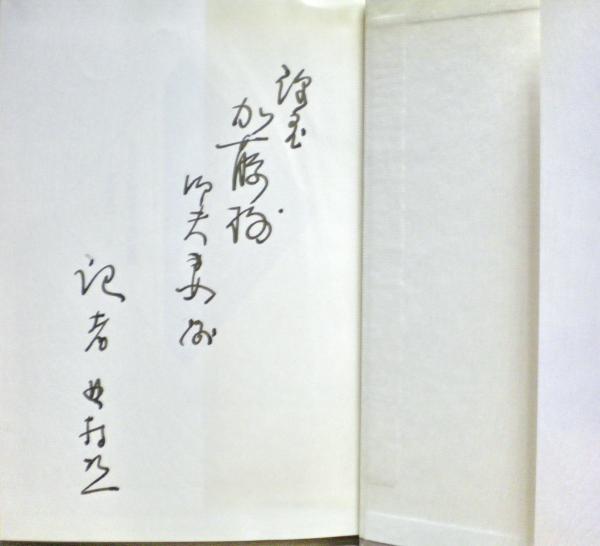 謹呈
加藤様
御夫妻様
記者